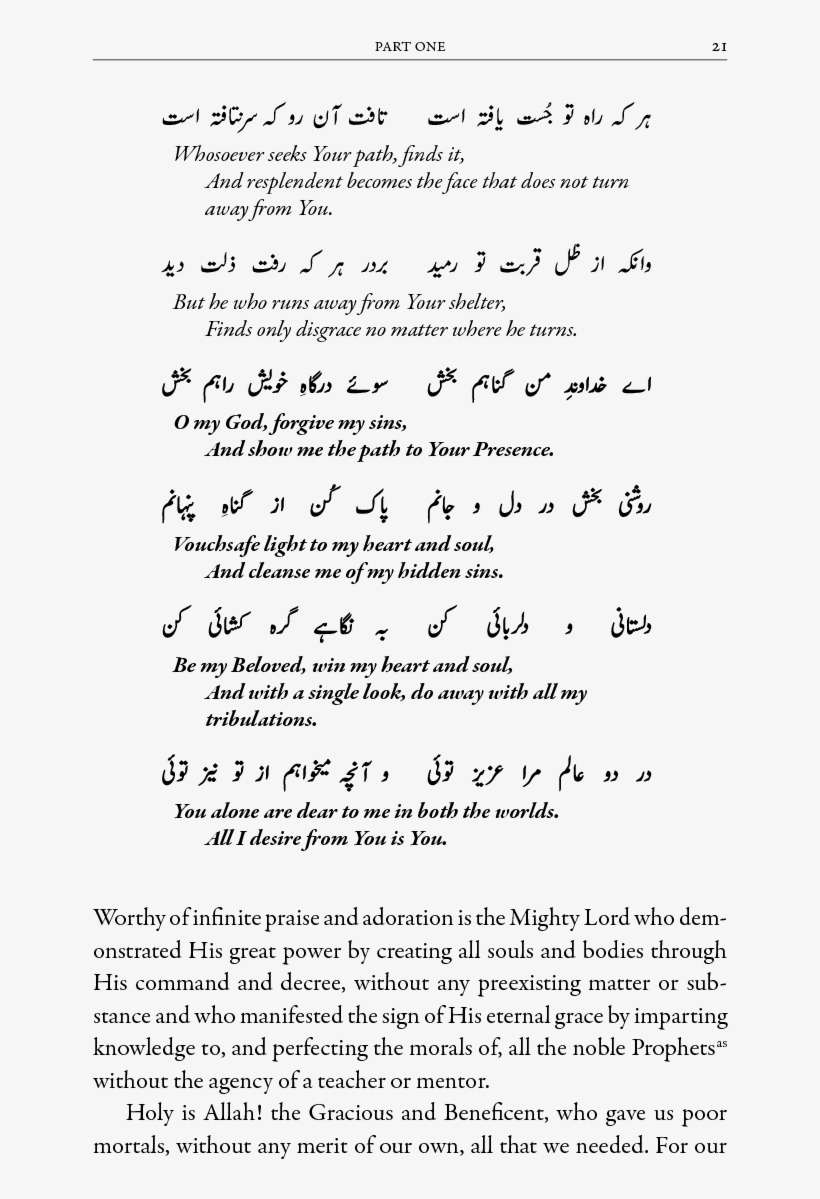 PART ONE 21
ہر کہ راہ تو جُست یافتہ است تافت آن رو کہ سرنتافتہ است
Whosoever seeks Your path, finds it,
And resplendent becomes the face that does not turn
away from You.
وانکہ از ظل قربت تو رمید بردر ہر کہ رفت ذلت دید
But he who runs away from Your shelter,
Finds only disgrace no matter where he turns.
اے خداوندِ من گناہم بخش سوئے درگاہِ خویش راہم بخش
O my God, forgive my sins,
And show me the path to Your Presence.
روشنی بخش در دل و جانم پاک کُن از گناہِ پنہانم
Vouchsafe light to my heart and soul,
And cleanse me of my hidden sins.
دلستانی و دلربائی کن بہ نگاہے گرہ کشائی کن
Be my Beloved, win my heart and soul,
And with a single look, do away with all my
tribulations.
در دو عالم مرا عزیز توئی و آنچہ میخواہم از تو نیز توئی
You alone are dear to me in both the worlds.
All I desire from You is You.
Worthy of infinite praise and adoration is the Mighty Lord who dem-
onstrated His great power by creating all souls and bodies through
His command and decree, without any preexisting matter or sub-
stance and who manifested the sign of His eternal grace by imparting
knowledge to, and perfecting the morals of, all the noble Prophetsas
without the agency of a teacher or mentor.
Holy is Allah! the Gracious and Beneficent, who gave us poor
mortals, without any merit of our own, all that we needed. For our